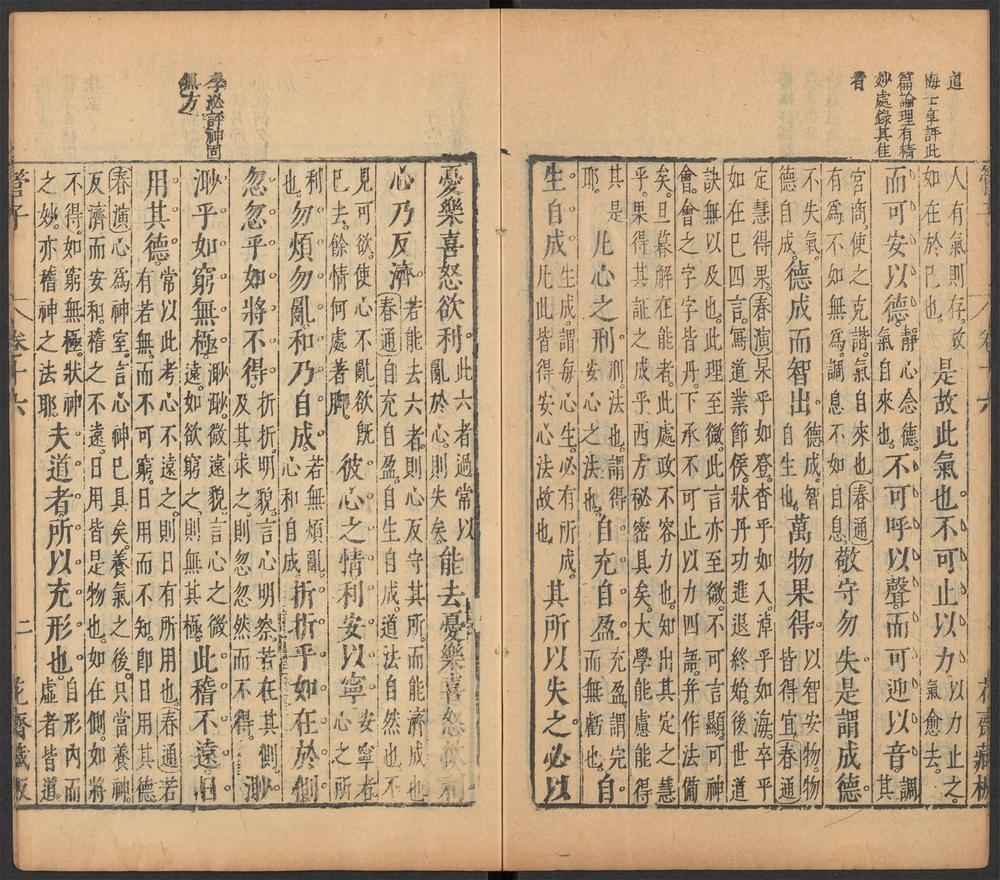 道
梅士享評此
篇論理有精
妙處錄其佳
者
人有氣則存故
如在於巳也。
是故此氣也。不可止以力。
以力止之。
氣愈去。
而可安以德。
靜心念德。
氣自來也。
不可呼以聲。而可迎以音
調
其
宮商。使之克諧。氣自來也春通
有為不如無為。調息不如自息。
敬守勿失。是謂成德
不失氣。
德自成。
德成而智出
德成。智
自生也。
萬物果得。
以智安物。物
皆得宜。春通
定慧得果。春演果乎如登。杳乎如入。淖乎如海。卒乎
如在巳四言。寫道業節侯。狀丹功進退終始。後世道
訣無以及也。此理至微。此言亦至微。不可言顯。可神
會。會之字字皆丹。下承不可止以力四語。并作法備
矣。旦暮解在能者。此處政不容力也。知出其定之慧
乎。果得其証之成乎。西方秘密具矣。大學能慮能得
其是
耶。
凡心之刑
刑法也。謂得
安心之法也。
自充自盈
充盈。謂完
而無虧也。
自
生自成
生成。謂每心生。必有所成。
凡此皆得安心法故也。
其所以失之。必以
憂樂喜怒欲利。
此六者過常以
亂於心。則失矣。
能去憂樂喜怒欲利
心乃反濟。
若能去六者。則心反守其所。而能濟成也
春通自充自盈。自生自成。道法自然也。不
見可欲。使心不亂。欲既
巳去。餘情何處著腳。
彼心之情。利安以寧。
安寧者
心之所
利
也。
勿煩勿亂。和乃自成。
若無煩亂。
心和自成。
折折乎如在於側
忽忽乎如將不得。
折折。明貌。言心明察。若在其側。
及其求之。則忽忽然而不得。
渺
渺乎如窮無極。
渺渺。微貌。言心之微
遠。如欲窮之。則無其極。
此稽不遠。日
用其德。
常以此考心。不遠之。則日有所用也。春通若
有若無。而不可窮。日用而不知。卽日用其德
春演心為神室。言心神巳具矣。養氣之後。只當養神
反濟而安和。稽之不遠。日用皆是物也。如在側。如將
不得。如窮無極。狀神
之妙。亦稽神之法耶
夫道者。所以充形也。
自形內而
虛者皆道。
管子 卷十六 二 花齋藏板
李泌評神固
無方